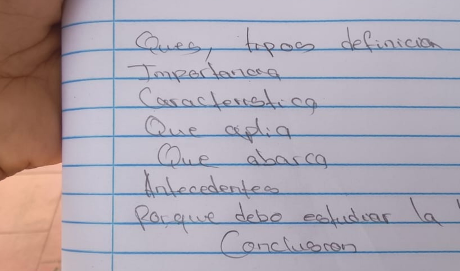 Ques, tipos definicion
Importancia
Caracteristica
Que aplia
Que abarca
Antecedentes
Porque debo estudiar la
Conclusion